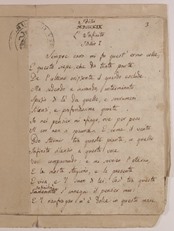 L'Infinito
Idillio I
Sempre caro mi fu quest'ermo colle,
E questa siepe, che da tanta parte
De l'ultimo orizzonte il guardo esclude.
Ma sedendo e mirando,
Spazio di là da quella, e sovrumani
Silenzi, e profondissima quiete
Io nel pensier mi fingo, ove per poco
Il cor non si spaura. E come il vento
Odo stormir tra queste piante, io quello
Infinito silenzio a questa voce
Vo comparando: e mi sovvien l'eterno,
E le morte stagioni, e la presente
E viva, e 'l suon di lei. Così tra questa
s'annega il pensier mio:
E 'l naufragar m'è dolce in questo mare.